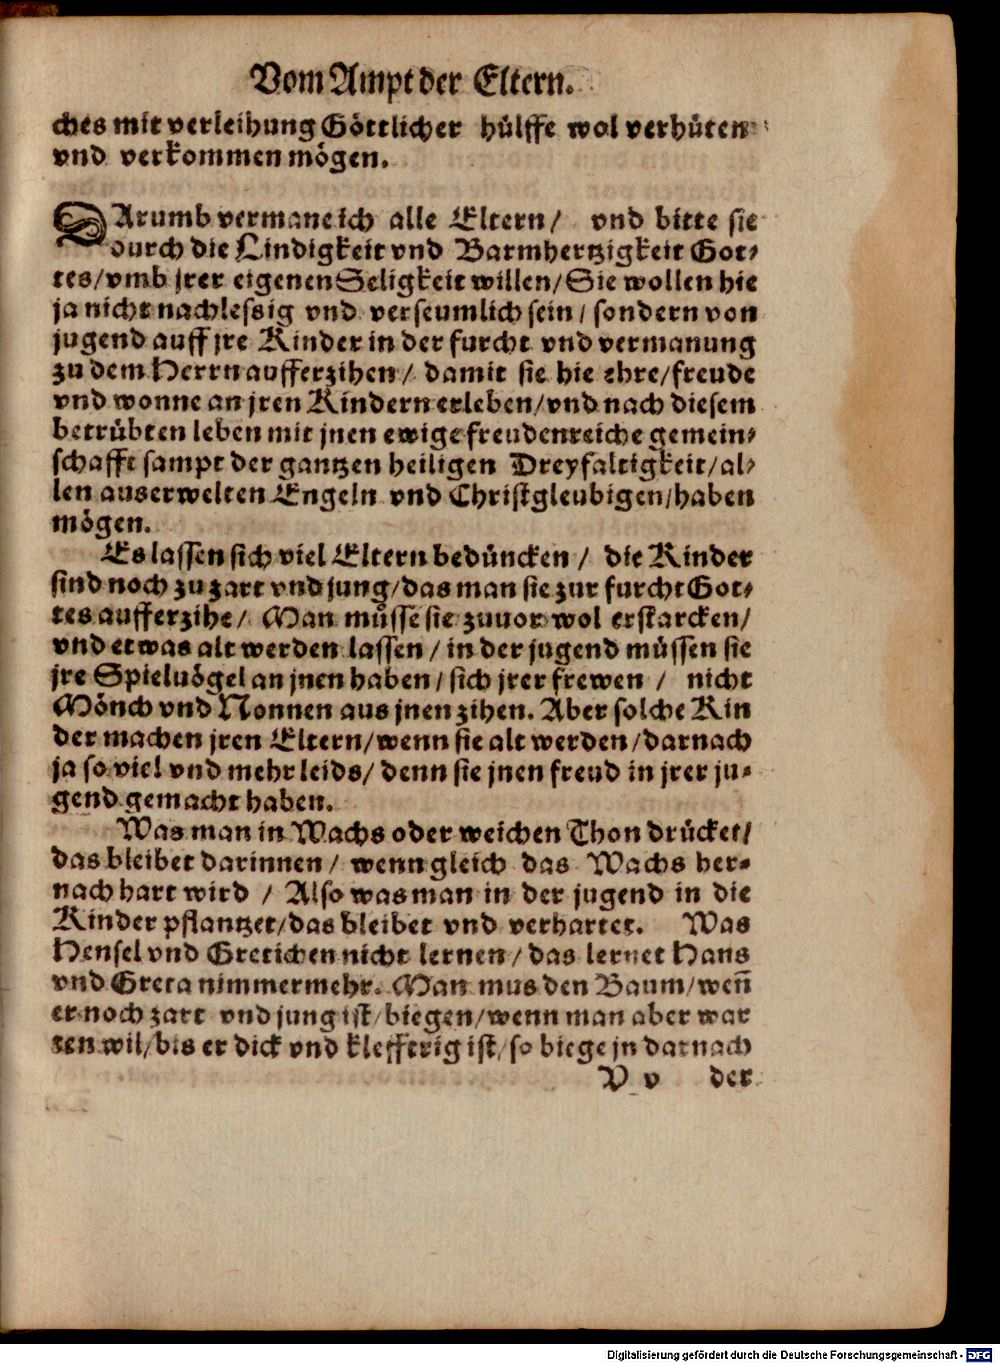 Vom Ampt der Eltern.
ches mit verleihung Göttlicher hülffe wol verhüten
vnd verkommen mögen.
DArumb vermane ich alle Eltern / vnd bitte sie
durch die Lindigkeit vnd Barmhertzigkeit Got⸗
tes / vmb jrer eigenen Seligkeit willen / Sie wollen hie
ja nicht nachlessig vnd verseumlich sein / sondern von
jugend auff jre Kinder in der furcht vnd vermanung
zu dem Herrn aufferzihen / damit sie hie ehre / freude
vnd wonne an jren Kindern erleben / vnd nach diesem
betrübten leben mit jnen ewige freudenreiche gemein⸗
schafft sampt der gantzen heiligen Dreyfaltigkeit / al⸗
len auserwelten Engeln vnd Christgleubigen / haben
mögen.
Es lassen sich viel Eltern bedüncken / die Kinder
sind noch zu zart vnd jung / das man sie zur furcht Got⸗
tes aufferzihe / Man müsse sie zuuor wol erstarcken /
vnd etwas alt werden lassen / in der jugend müssen sie
jre Spieluögel an jnen haben / sich jrer frewen / nicht
Mönch vnd Nonnen aus jnen zihen. Aber solche Kin
der machen jren Eltern / wenn sie alt werden / darnach
ja so viel vnd mehr leids / denn sie jnen freud in jrer ju⸗
gend gemacht haben.
Was man in Wachs oder weichen Thon drücket /
das bleibet darinnen / wenn gleich das Wachs her⸗
nach hart wird / Also was man in der jugend in die
Kinder pflantzet / das bleibet vnd verhartet. Was
Hensel vnd Gretichen nicht lernen / das lernet Hans
vnd Greta nimmermehr. Man mus den Baum / weñ
er noch zart vnd jung ist / biegen / wenn man aber war
ten wil / bis er dick vnd klefftrig ist / so biege jn darnach
V v der
Digitalisierung gefördert durch die Deutsche Forschungsgemeinschaft - DFG